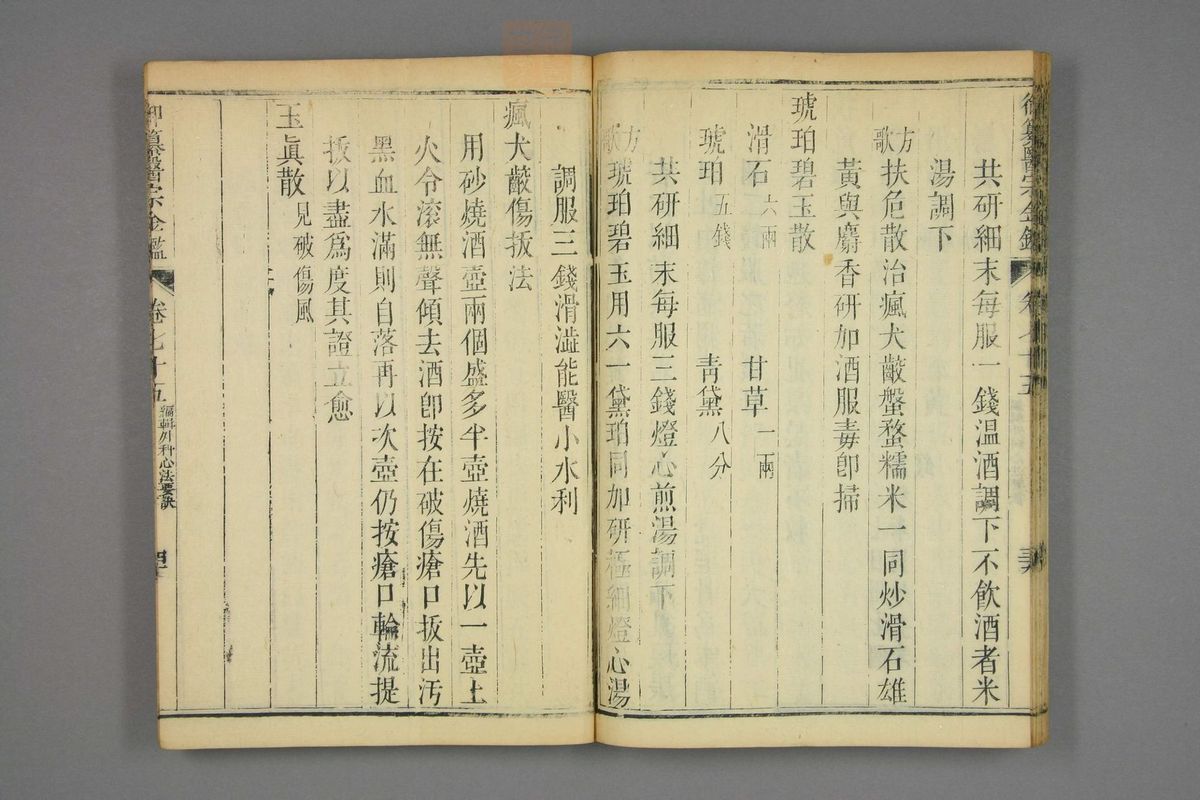 共研細末每服一錢温酒調下不飲酒者米
湯調下
方歌 扶危散治瘋犬齩螌蝥糯米一同炒滑石雄
黃與麝香研加酒服毒卽掃
琥珀碧玉散
滑石六兩 甘草一兩
琥珀五錢 靑黛八分
共研細末每服三錢燈心煎湯調下
方歌 琥珀碧玉用六一黛珀同加研極細燈心湯
調服三錢滑澁能醫小水利
瘋犬齩傷拔法
用砂燒酒壺兩個盛多半壺燒酒先以一壺上
火令滚無聲傾去酒卽按在破傷瘡口拔出汚
黑血水滿則自落再以次壺仍按瘡口輪流提
拔以盡爲度其證立愈
玉眞散見破傷風
御纂醫宗金鑑 卷七十五 編輯外科心法要訣